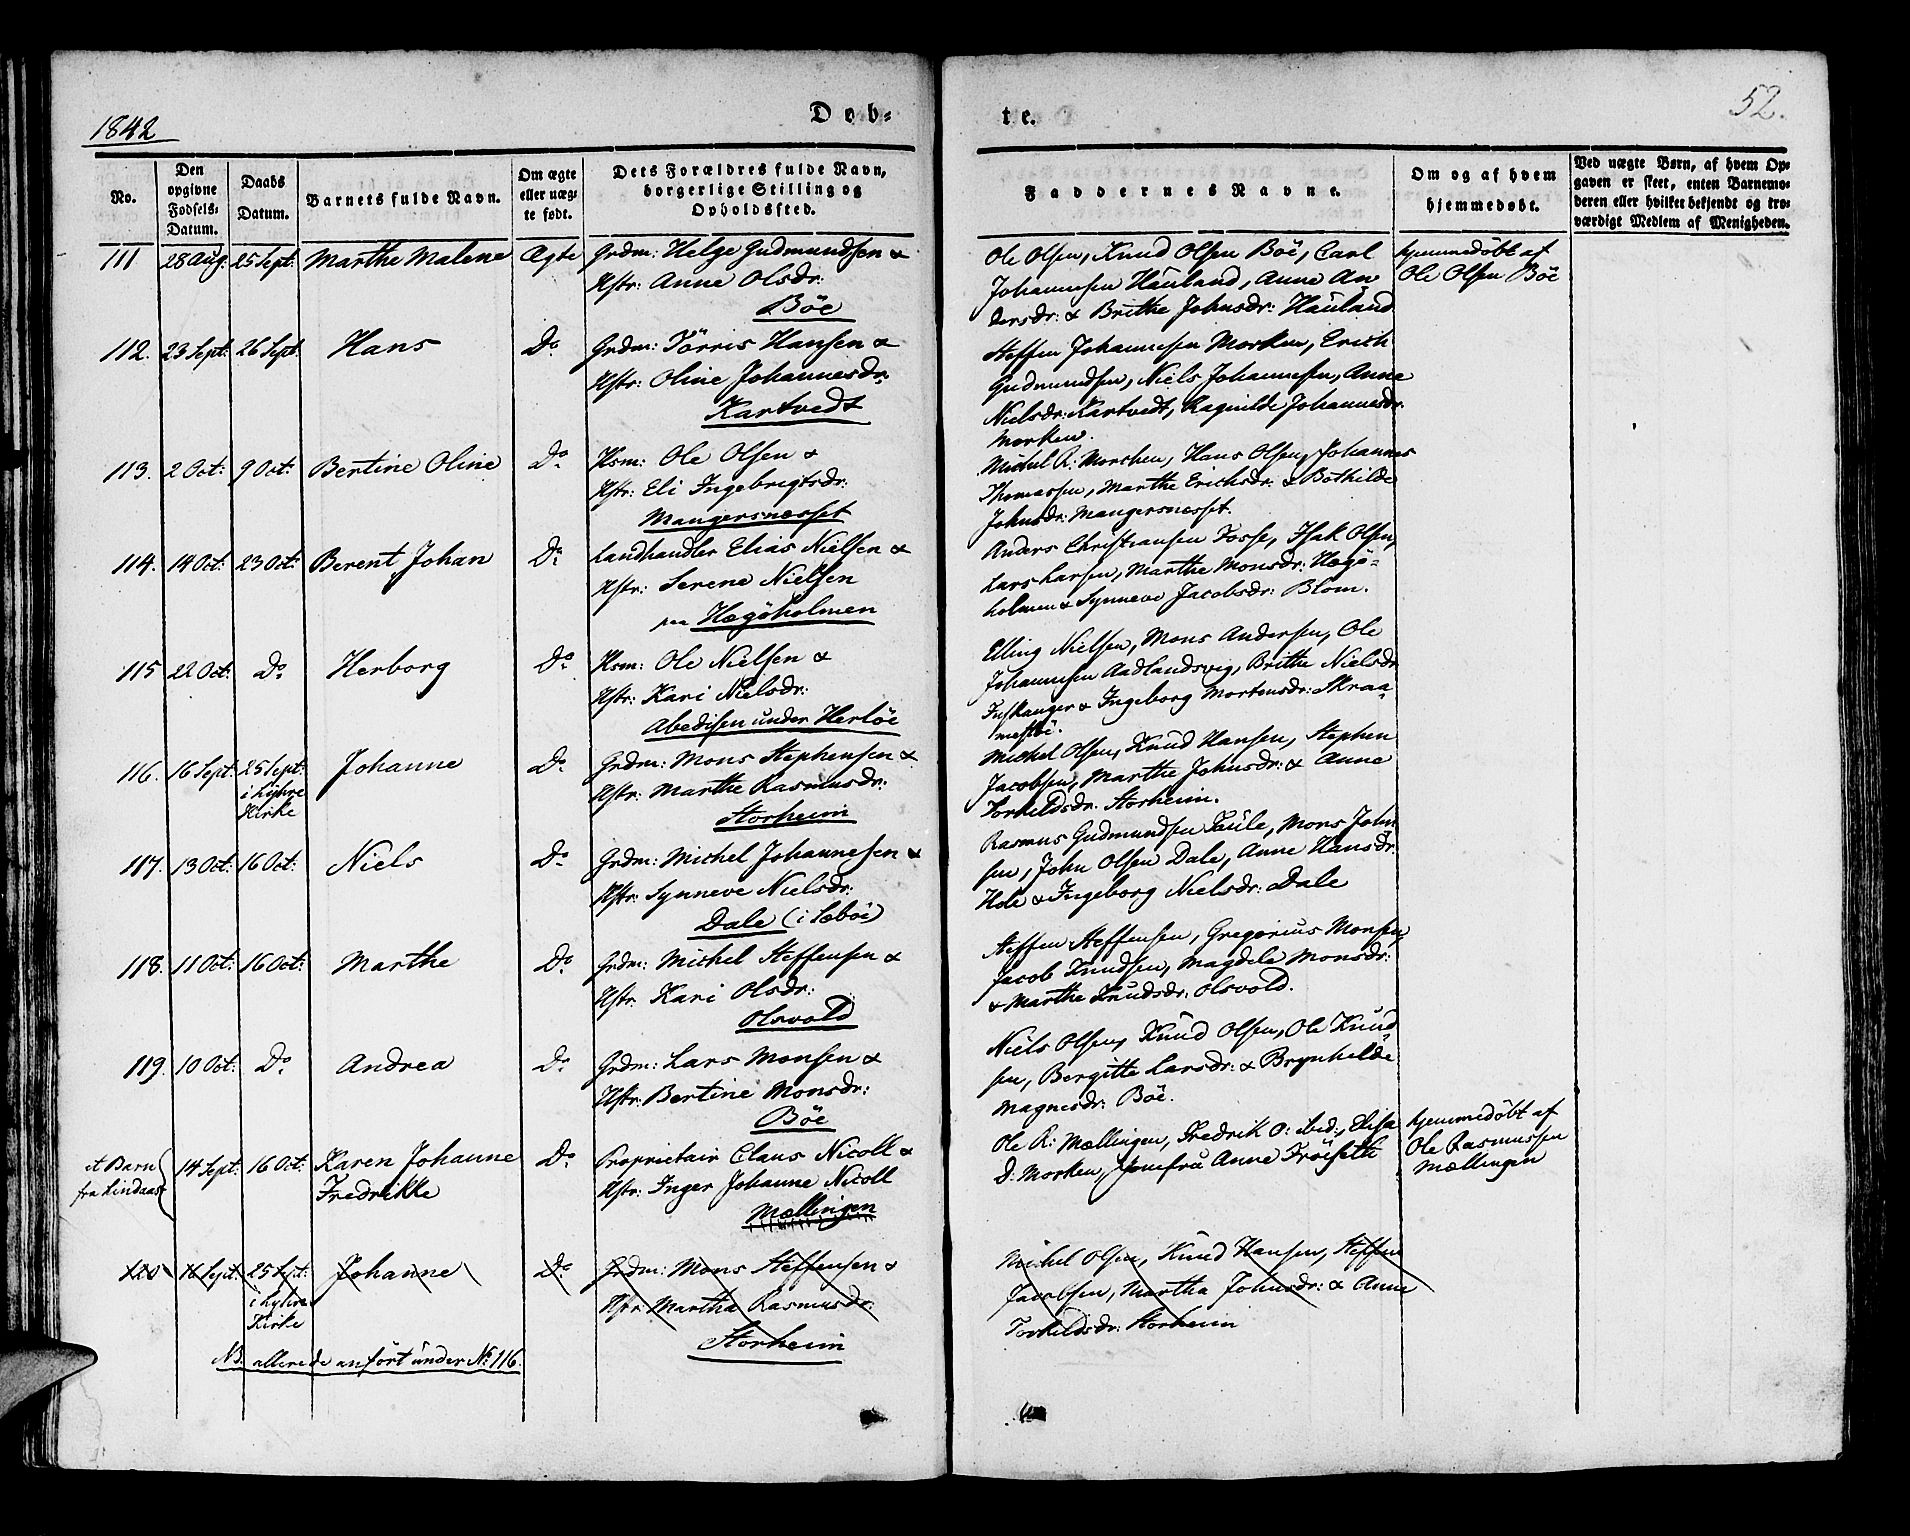 1842
Døb-
te.
52.
No.
Den opgivne Fødsels-Datum.
Daabs Datum.
Barnets fulde Navn.
Om ægte eller uægte født.
Dets Forældres fulde Navn, borgerlige Stilling og Opholdssted.
Faddernes Navne.
Om og af hvem hjemmedøbt.
Ved uægte Børn, af hvem Opgaven er skeet, enten Barnemoderen eller hvilket bekjendt og troværdigt Medlem af Menigheden.
111 28 Aug: 25 Sept: Marthe Malene Ægte Grdm: Helge Gudmundsen &
Hstr: Anne Olsdr:
Böe
Ole Olsen, Knud Olsen Böe, Carl
Johannesen Hauland, Anne An
dersdr: & Brithe Johnsdr: Hauland
hjemmedöbt af
Ole Olsen Böe
112. 23 Sept: 26 Sept: Hans Do Grdm: Törris Hansen &
Hstr: Oline Johannesdr:
Kartvedt
Steffen Johannesen Morken, Erich
Gudmundsen, Niels Johannesen, Anne
Nielsdr: Kartvedt, Ragnilde Johannesdr:
Morken.
113. 2 Oct: 9 Oct: Bertine Oline Do Hsm: Ole Olsen &
Hstr: Eli Ingebrigtsdr:
Mangersnesset
Michel R: Morchen, Hans Olsen, Johannes
Thomassen, Marthe Erichsdr: & Bothilde
Johnsdr: Mangersnesset.
114. 14 Oct: 23 Oct: Berent Johan Do Landhandler Elias Nielsen &
Hstr: Serene Nielsen
paa Hægöholmen
Anders Christiansen Fosse, Isak Olsen,
Lars Larsen, Marthe Monsdr: Hægö-
holmen & Synneve Jacobsdr: Blom.
115 22 Oct: Do Herborg Do Hsm: Ole Nielsen &
Hstr: Kari Nielsdr:
Abedisen under Herlöe
Elling Nielsen, Mons Andersen, Ole
Johannesen Aadlandsvig, Brithe Nielsdr
Fuskanger & Ingeborg Mortensdr: Skraa-
mestöe.
116. 16 Sept: 25 Sept: Johanne Do Grdm: Mons Stephensen &
i Lyhre
Kirke
Hstr: Marthe Rasmusdr:
Storheim
Michel Olsen, Knud Hansen, Stephen
Jacobsen, Marthe Johnsdr: & Anne
Torkildsdr. Storheim.
117. 13 Oct: 16 Oct: Niels Do Grdm: Michel Johannesen &
Hstr: Synneve Nielsdr:
Dale (i Sæböe)
Rasmus Gudmundsen Kule, Mons John
sen, John Olsen Dale, Anne Hansdr:
Hole & Ingeborg Nielsdr: Dale
118. 11 Oct: 16 Oct: Marthe Do Grdm: Michel Steffensen &
Hstr. Kari Olsdr:
Olsvold
Steffen Steffensen, Gregorius Monsen,
Jacob Knudsen, Magdele Monsdr:
& Marthe Knudsdr: Olsvold.
119. 10 Oct: Do Andrea Do Grdm: Lars Monsen &
Hstr: Bertine Monsdr:
Böe
Niels Olsen, Knud Olsen, Ole Knud
sen, Bergitte Larsdr: & Brynhilde
Magnesdr: Böe.
et Barn
fra Lindaas
14 Sept: 16 Oct: Karen Johanne
Fredrikke
Do Proprietair Claus Nicoll &
Hstr: Inger Johanne Nicoll
Mællingen
Ole R: Mællingen, Fredrik O: ibid:, Elisa
D: Morken, Jomfru Anne Fröiseth
hjemmedöbt af
Ole Rasmussen
Mællingen
120 16 Sept: 25 Sept: Johanne Do Grdm: Mons Steffensen &
i Lyhre
Kirke
Hstr: Martha Rasmusdr:
Storheim
Michel Olsen, Knud Hansen, Steffen
Jacobsen, Martha Johnsdr: & Anne
Torkildsdr: Storheim
NB. allerede anfört under No 116.